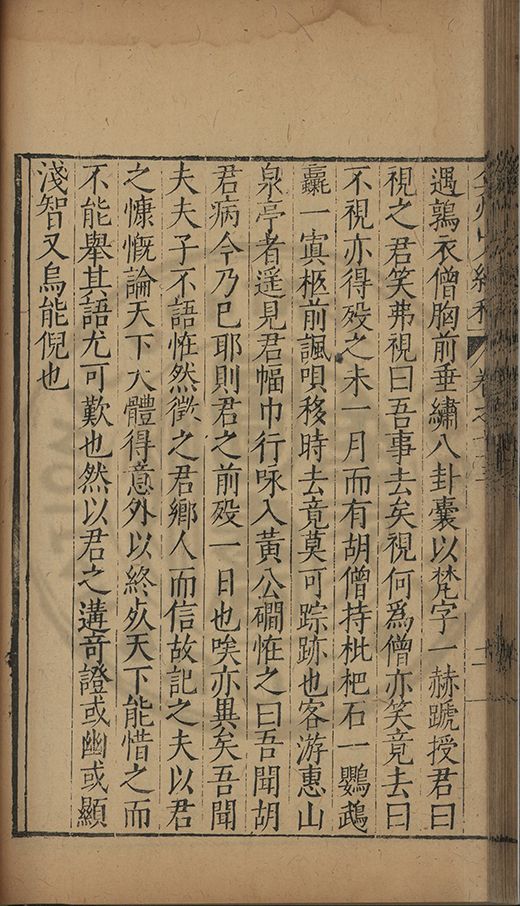 遇鶉衣僧胸前垂繡八卦囊以梵字一赫蹏授君曰
視之君笑弗視曰吾事去矣視何爲僧亦笑竟去曰
不視亦得歿之未一月而有胡僧持枇杷石一鸚鵡
羸一寘柩前諷唄移時去竟莫可踪跡也客游惠山
泉亭者遥見君幅巾行咏入黃公磵恠之曰吾聞胡
君病今乃已耶則君之前歿一日也唉亦異矣吾聞
夫夫子不語恠然徵之君鄉人而信故記之夫以君
之慷慨論天下大體得意外以終歿天下能惜之而
不能舉其語尤可歎也然以君之遘竒證或幽或顯
淺智又烏能倪也